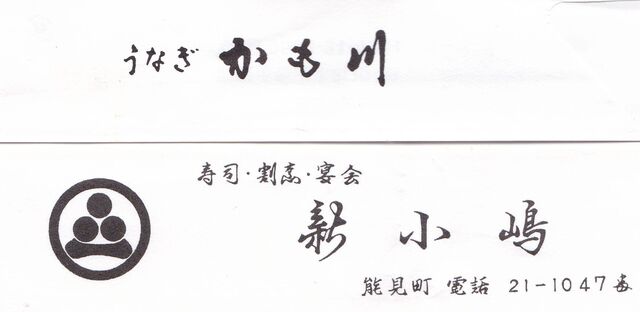 うなぎ かも川
寿司・割烹・宴会
新小嶋
能見町 電話 21-1047番